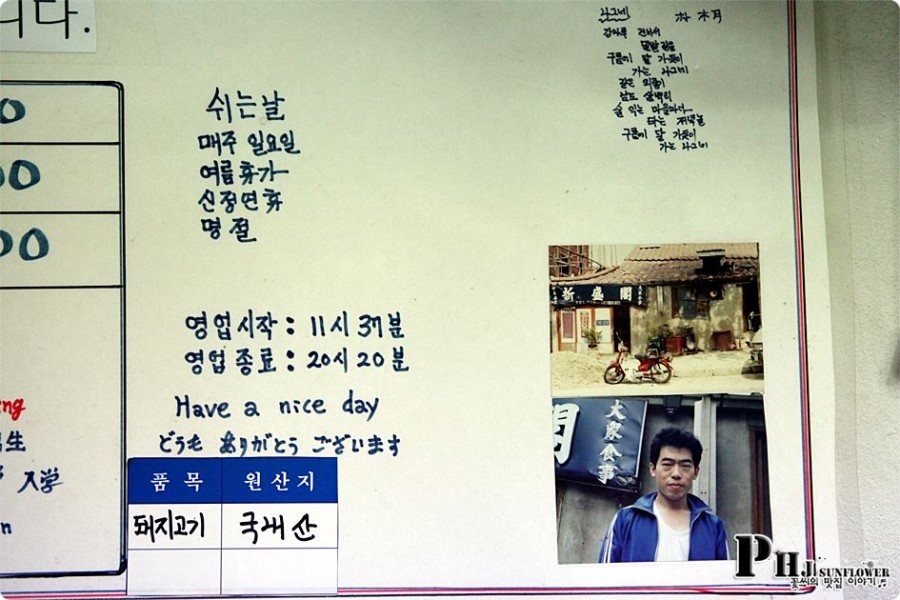 니다.
0
00
00
ng
生
入学
n
쉬는날
매주 일요일
여름휴가
신정연휴
명절
영업시작: 11시 37분
영업종료: 20시 20분
Have a nice day
どうも ありがとう ございます
품목 원산지
돼지고기 국내산
나그네
강나루 건너서
밀밭 길을
구름에 달 가듯이
가는 나그네
길은 외줄기
남도 삼백리
술 익는 마을마다
타는 저녁놀
구름에 달 가듯이
가는 나그네
新盛閣
閣
大衆食事
PHJ SUNFLOWER
꽃씨의 맛집 이야기♬